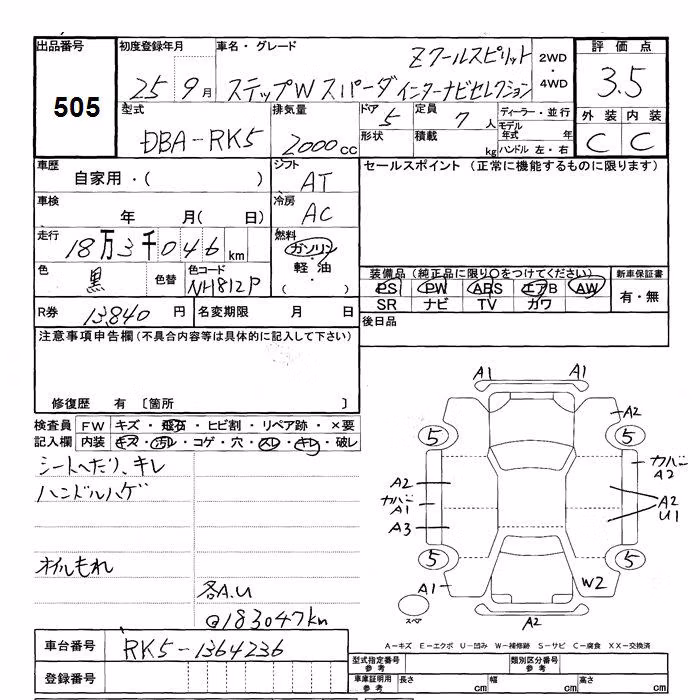 出品番号 505
初度登録年月 25 9月
車名・グレード Zクールスピリット
ステップWスパーダ インターナビセレクション
2WD・4WD
評価点 3.5
外装 C 内装 C
型式 DBA-RK5
排気量 2000cc
ドア 5
形状
定員 7人
積載 kg
ディーラー・並行
モデル年式 年
ハンドル 左・右
車歴 自家用・( )
シフト AT
セールスポイント (正常に機能するものに限ります)
車検 年 月( 日)
冷房 AC
走行 18万3千046km
燃料 ガソリン・軽油・( )
色 黒 色替
色コード NH812P
装備品 (純正品に限り○をつけてください)
PS PW ABS エアB AW
SR ナビ TV カワ
新車保証書 有・無
R券 13,840円
名変期限 月 日
後日品
注意事項申告欄(不具合内容等は具体的に記入して下さい)
修復歴 有 〔箇所 〕
検査員記入欄
FW キズ・飛石・ヒビ割・リペア跡・×要
内装 キズ・汚レ・コゲ・穴・スレ・キレ・破レ
シートヘたり、キレ
ハンドルハゲ
オイルもれ
各A.U
@183047km
A1 A1
A2
5 5
カバー A2
A2
カバー A1
A3
A2 U1
5 5
A1
W2
スペア
A2
A-キズ E-エクボ U-凹み W-補修跡 S-サビ C-腐食 XX-交換済
車台番号 RK5-1364236
登録番号
型式指定番号 参考
類別区分番号 参考
車庫証明用 参考 長さ cm 幅 cm 高さ cm